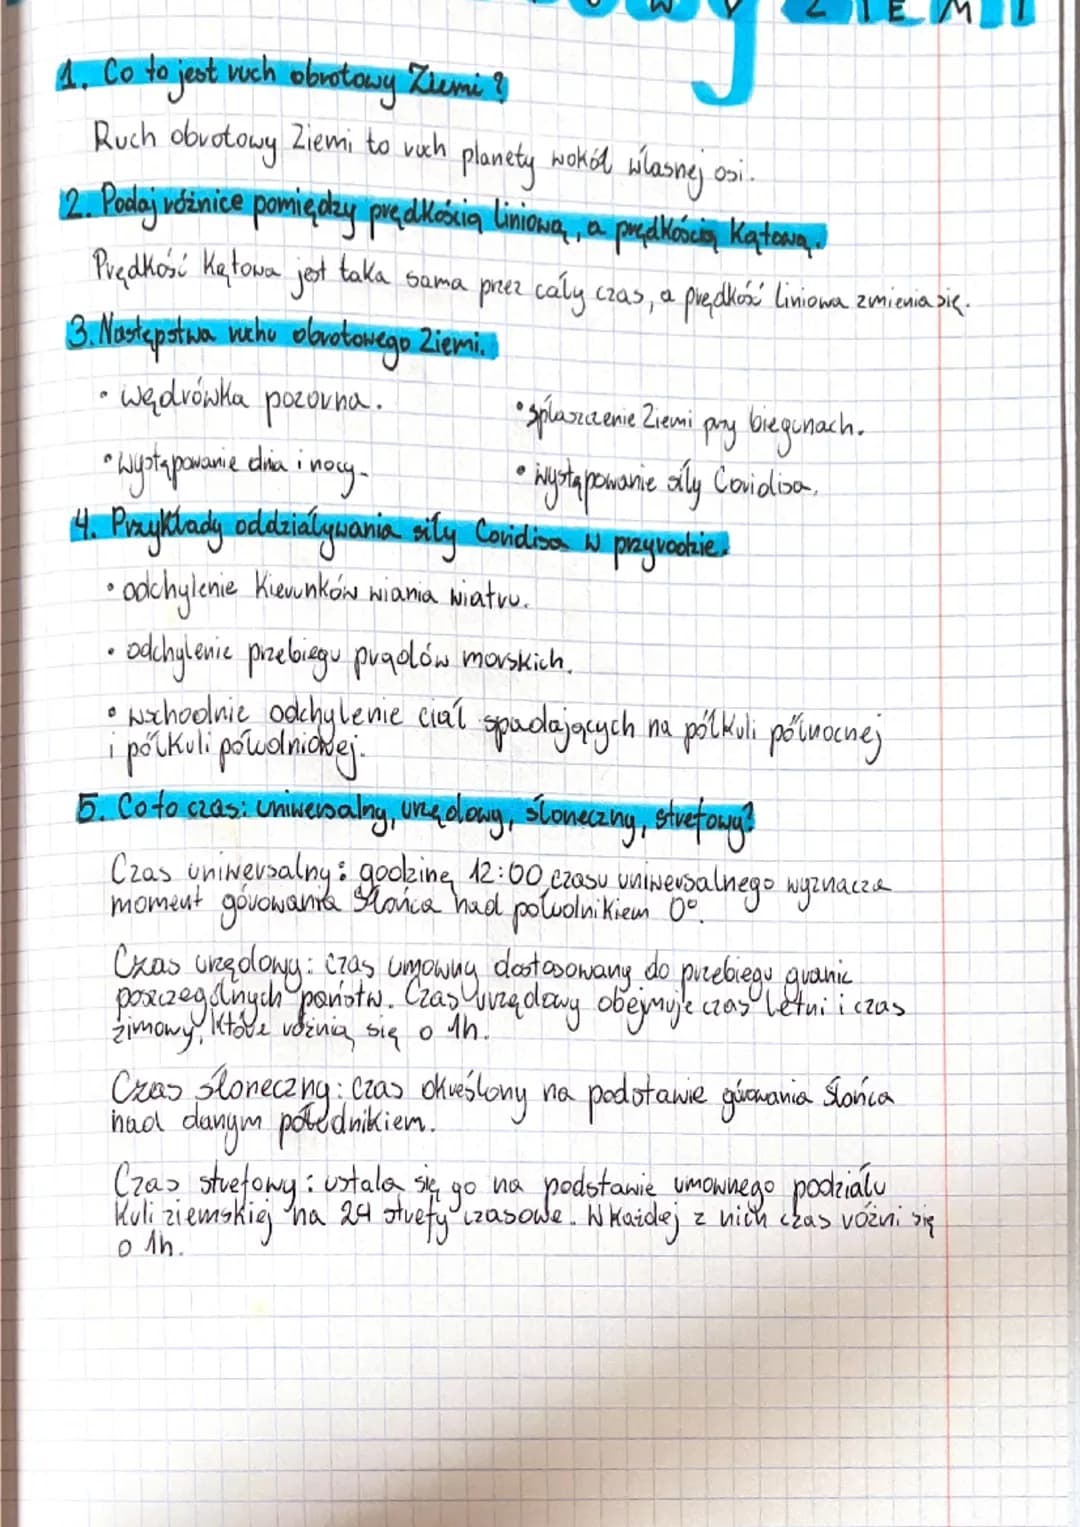 ZIEMI
1. Co to jest ruch obrotowy Ziemi?
Ruch obrotowy Ziemi to ruch planety wokół własnej osi.
2. Podaj różnice pomiędzy prędkością liniową, a prędkością kątową.
Prędkość kątowa jest taka sama przez cały czas, a prędkość liniowa zmienia się.
3. Następstwa ruchu obrotowego Ziemi.
• wędrówka pozorna.
• spłaszczenie Ziemi przy biegunach.
• występowanie dnia i nocy.
• występowanie siły Coriolisa.
4. Przykłady oddziaływania siły Coriolisa w przyrodzie.
• odchylenie kierunków wiania wiatru.
• odchylenie przebiegu prądów morskich.
• wschodnie odchylenie ciał spadających na półkuli północnej
i półkuli południowej.
5. Co to czas: uniwersalny, urzędowy, słoneczny, strefowy?
Czas uniwersalny: godzinę 12:00 czasu uniwersalnego wyznacza
moment górowania Słońca nad południkiem 0°.
Czas urzędowy: czas umowny dostosowany do przebiegu granic
poszczególnych państw. Czas urzędowy obejmuje czas letni i czas
zimowy, które różnią się o 1h.
Czas słoneczny: czas określony na podstawie górowania Słońca
nad danym południkiem.
Czas strefowy: ustala się go na podstawie umownego podziału
kuli ziemskiej na 24 strefy czasowe. W każdej z nich czas różni się
o 1h.